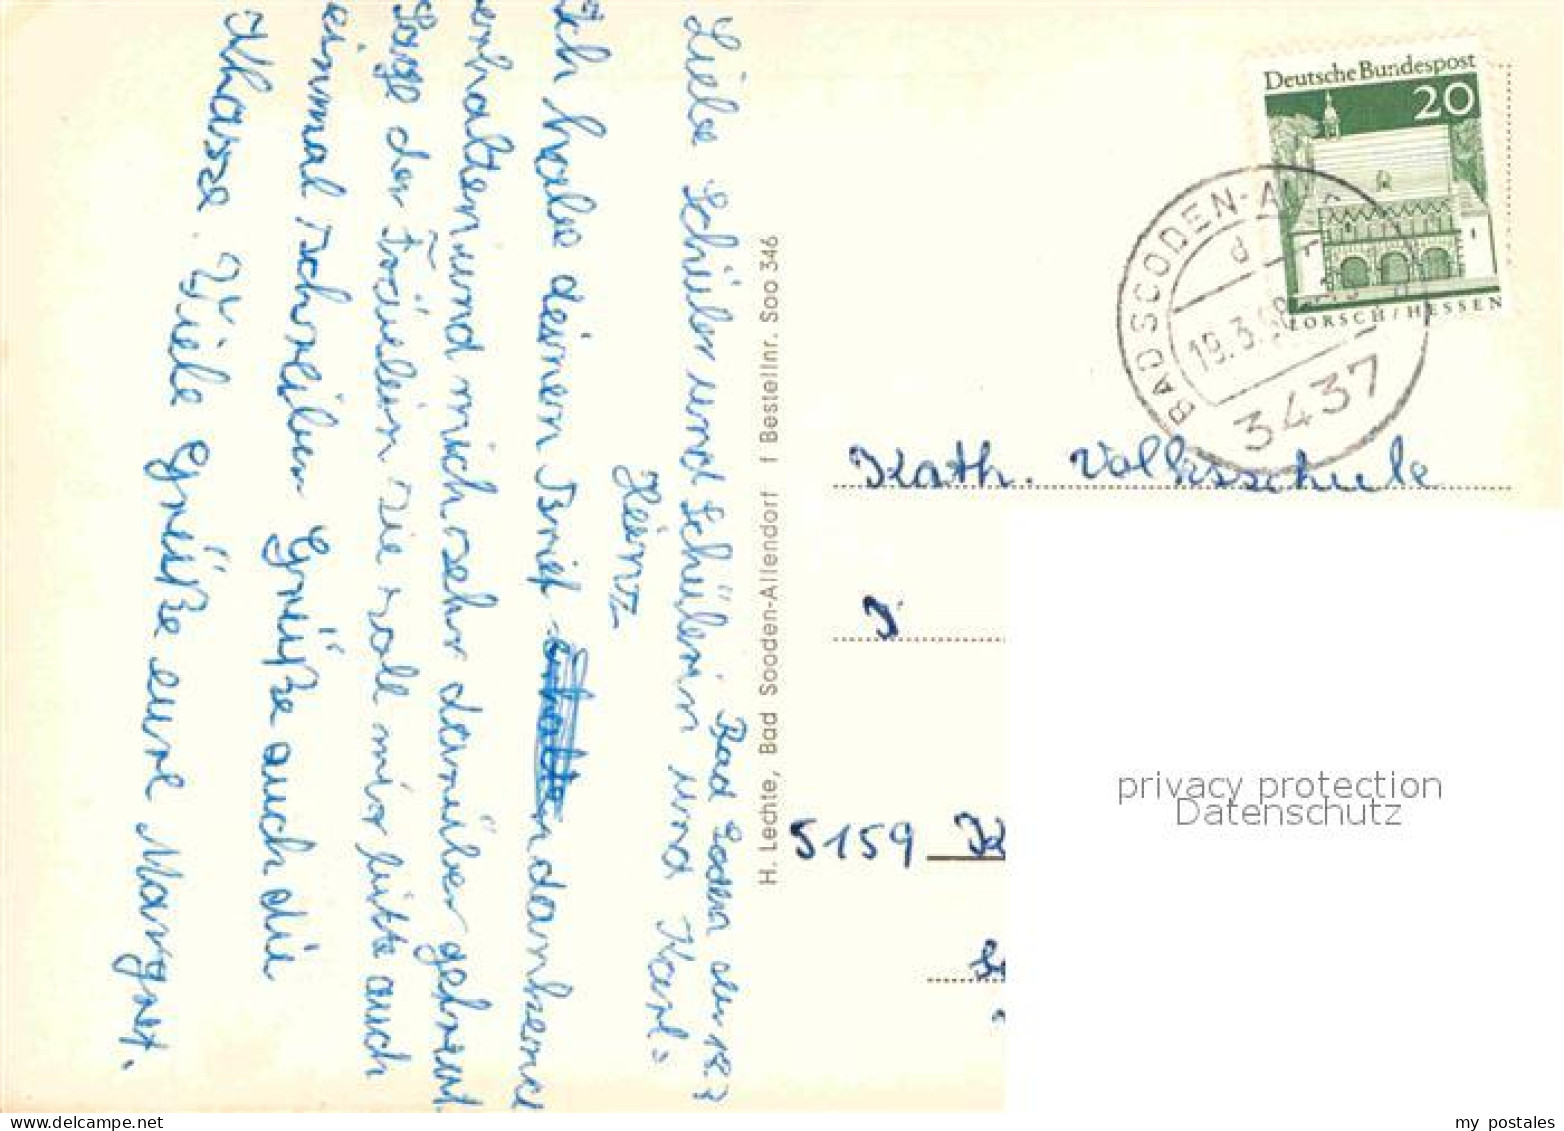 Bad Soden den 18.3
Liebe Schüler und Schülerin und Karl=
Heinz
Ich habe deinen Brief dankend
erhalten und mich sehr darüber gefreut.
Sage den Fräulein sie soll mir bitte auch
einmal schreiben Grüße auch die
Klasse. Viele Grüße eure Margret.
H. Lechte, Bad Sooden-Allendorf f Bestellnr. Soo 346
Deutsche Bundespost
20
LORSCH/HESSEN
BAD SOODEN-
d
19.3.
3437
Kath. Volksschule
5159 K
privacy protection
Datenschutz
www.delcampe.net
my postales